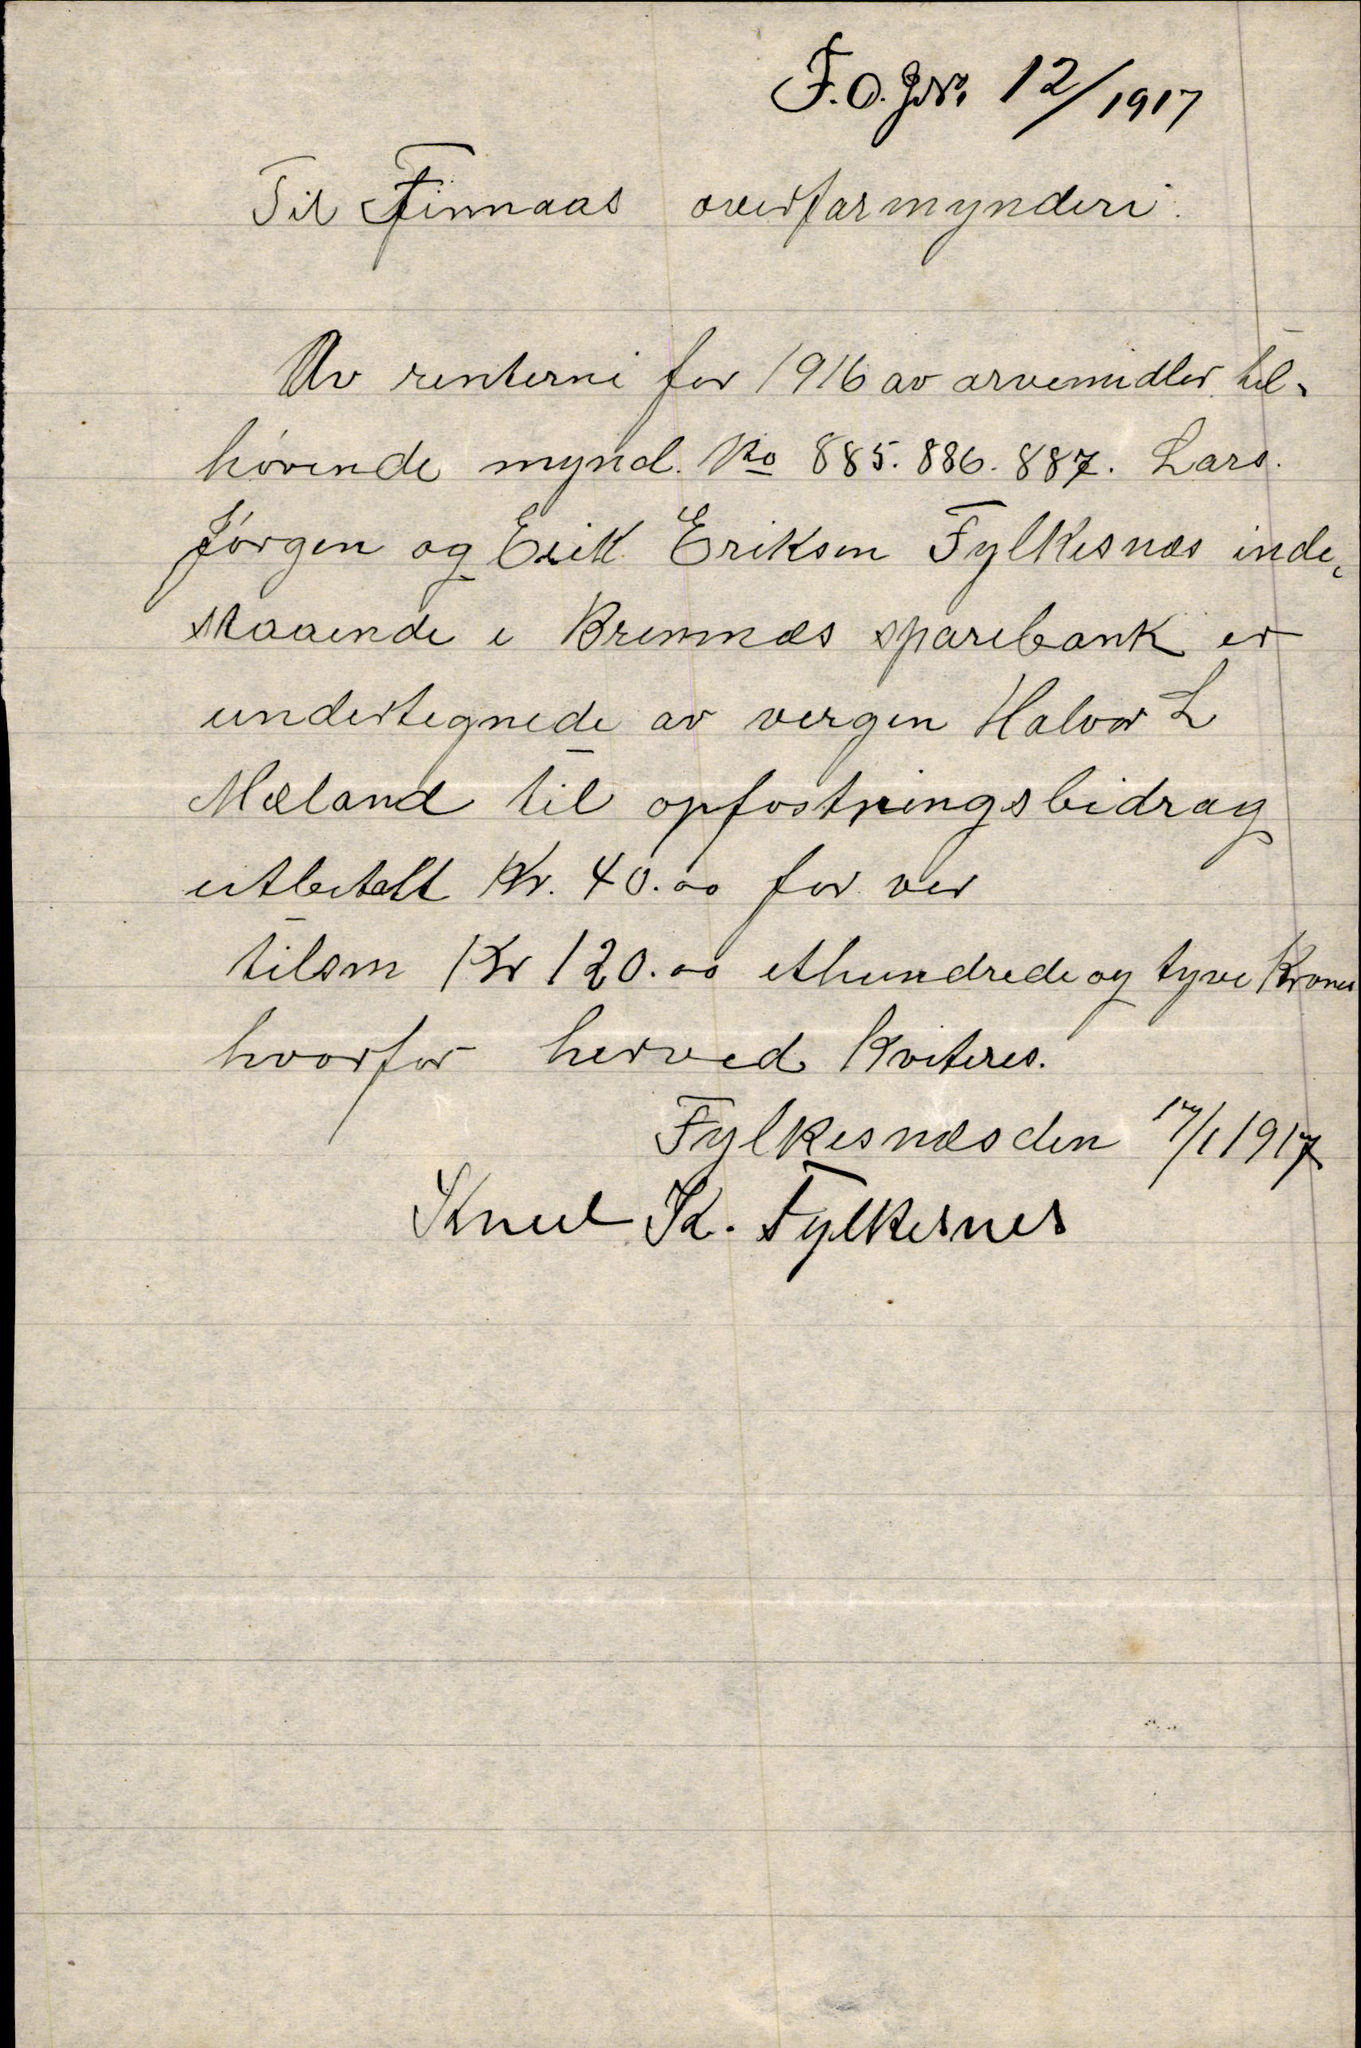 F.O. J.Nr. 12/1917
Til Finnaas overformynderi.
Av renterne for 1916 av arvemidler til-
hørende mynd. No 885. 886. 887. Lars.
Jørgen og Erik Eriksen Fylkesnæs inde-
staaende i Bremnæs sparebank er
undertegnede av vergen Halvor L
Mæland til opfostringsbidrag
utbetalt Kr. 40.00 for ver
tilsm Kr 120.00 ethundrede og tyve Kroner
hvorfor herved kviteres.
Fylkesnæs den 17/1 1917
Knut K. Fylkesnes